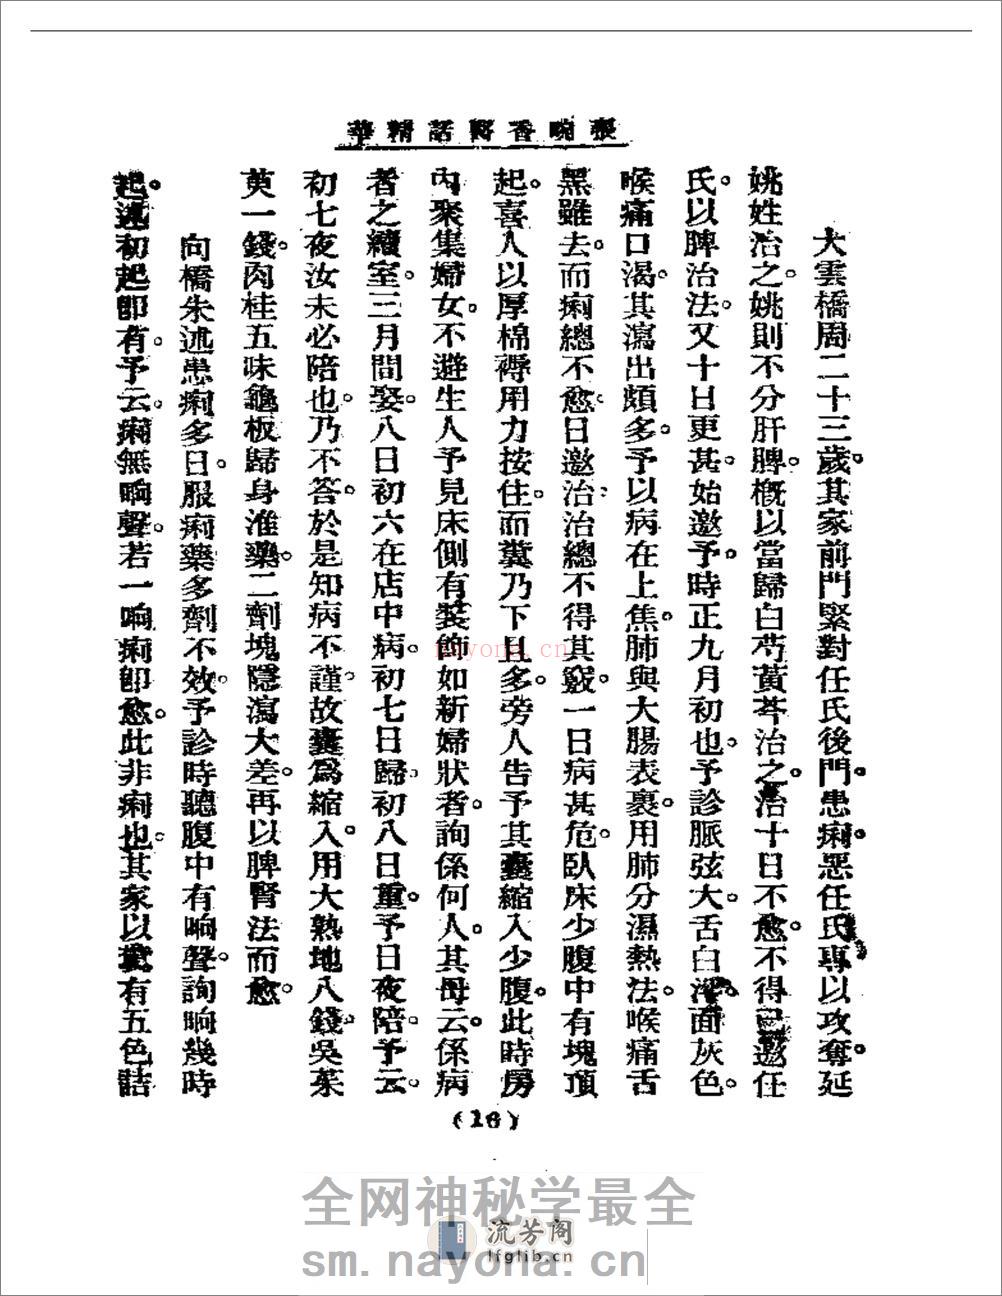 張畹香醫話精華
大雲橋周二十三歲。其家前門緊對任氏後門。患痢。惡任氏專以攻奪。延
姚姓治之。姚則不分肝脾。槪以當歸白芍黃芩治之。治十日不愈。不得已邀任
氏。以脾治法。又十日更甚。始邀予。時正九月初也。予診脈弦大。舌白滑。面灰色。
喉痛口渴。其瀉出頗多。予以病在上焦。肺與大腸表裏。用肺分濕熱法。喉痛舌
黑雖去。而痢總不愈。日邀治。治總不得其竅。一日病甚危。臥床少腹中有塊頂
起。喜人以厚棉褥用力按住。而糞乃下且多。旁人告予其囊縮入少腹。此時房
內聚集婦女。不避生人。予見床側有裝飾如新婦狀者。詢係何人。其母云。係病
者之續室。三月間娶。八日初六在店中病。初七日歸。初八日重。予日夜陪。予云。
初七夜汝未必陪也。乃不答。於是知病不謹。故囊爲縮入。用大熟地八錢。吳茱
萸一錢。肉桂五味龜板歸身淮藥。二劑塊隱瀉大差。再以脾腎法而愈。
向橋朱述患痢多日。服痢藥多劑不效。予診時聽腹中有响聲。詢响幾時
起。述初起卽有。予云。痢無响聲。若一响痢卽愈。此非痢也。其家以糞有五色詰
(16)
nayona.cn
全网神秘学最全
流芳阁
lfglib.cn
sm.nayona.cn